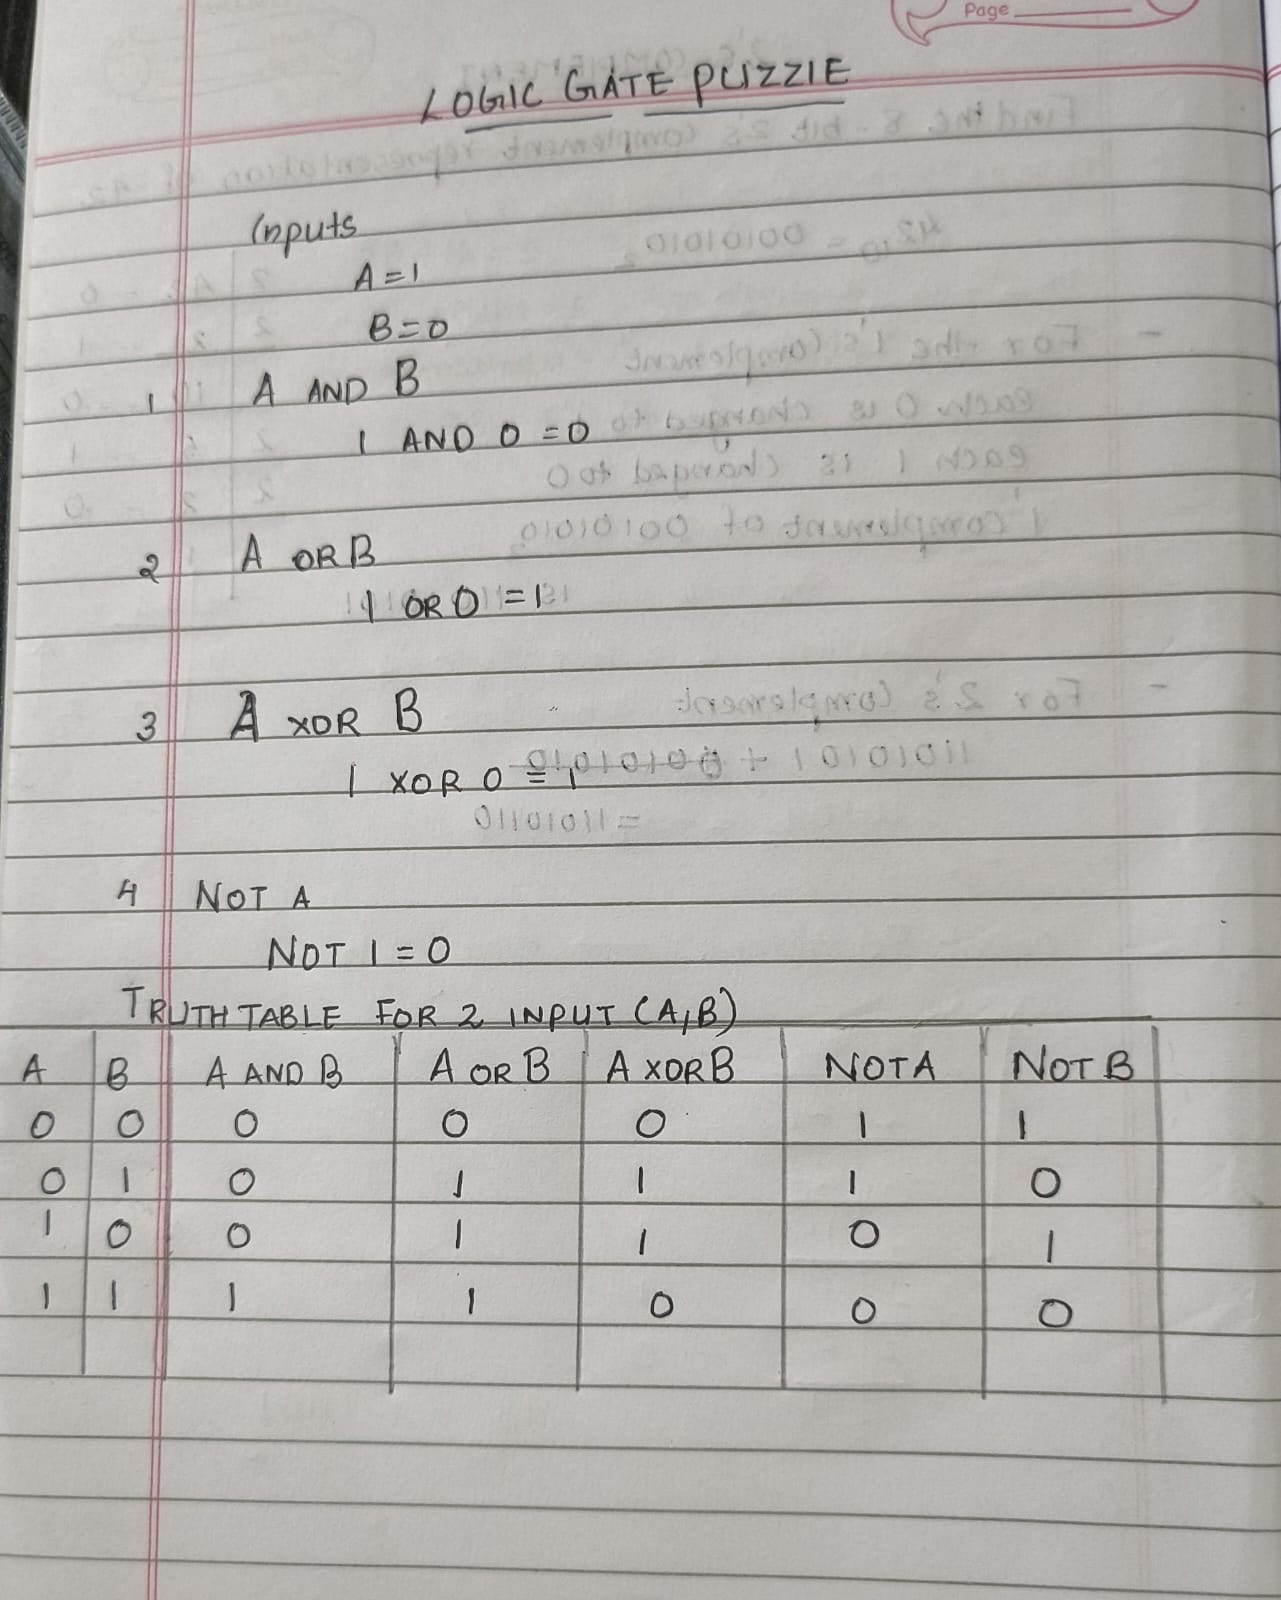 Page
LOGIC GATE PUZZIE
Inputs
A=1
B=0
1 A AND B
1 AND 0 = 0
2 A OR B
1 OR 0 = 1
3 A XOR B
1 XOR 0 = 1
4 NOT A
NOT 1 = 0
TRUTH TABLE FOR 2 INPUT (A,B)
A B A AND B A OR B A XOR B NOT A NOT B
0 0 0 0 0 1 1
0 1 0 1 1 1 0
1 0 0 1 1 0 1
1 1 1 1 0 0 0